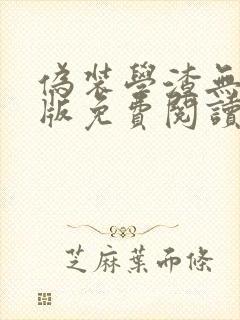 偽裝學渣無
版免費閱讀
芝麻葉而條